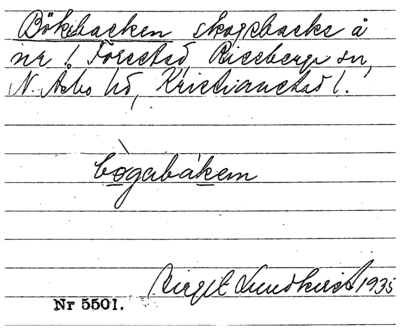 Bökebacken skogsbacke å
nr 1 Forestad, Riseberga sn,
N. Åsbo hd, Kristianstad l.
bògabákem
Birgit Sundkvist 1935
Nr 5501.